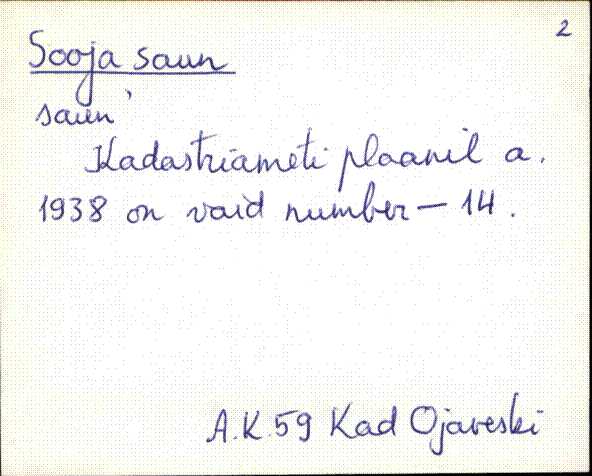 2
Sooja saun
saun'
Kadastriameti plaanil a.
1938 on vaid number - 14.
A.K. 59 Kad Ojaveski